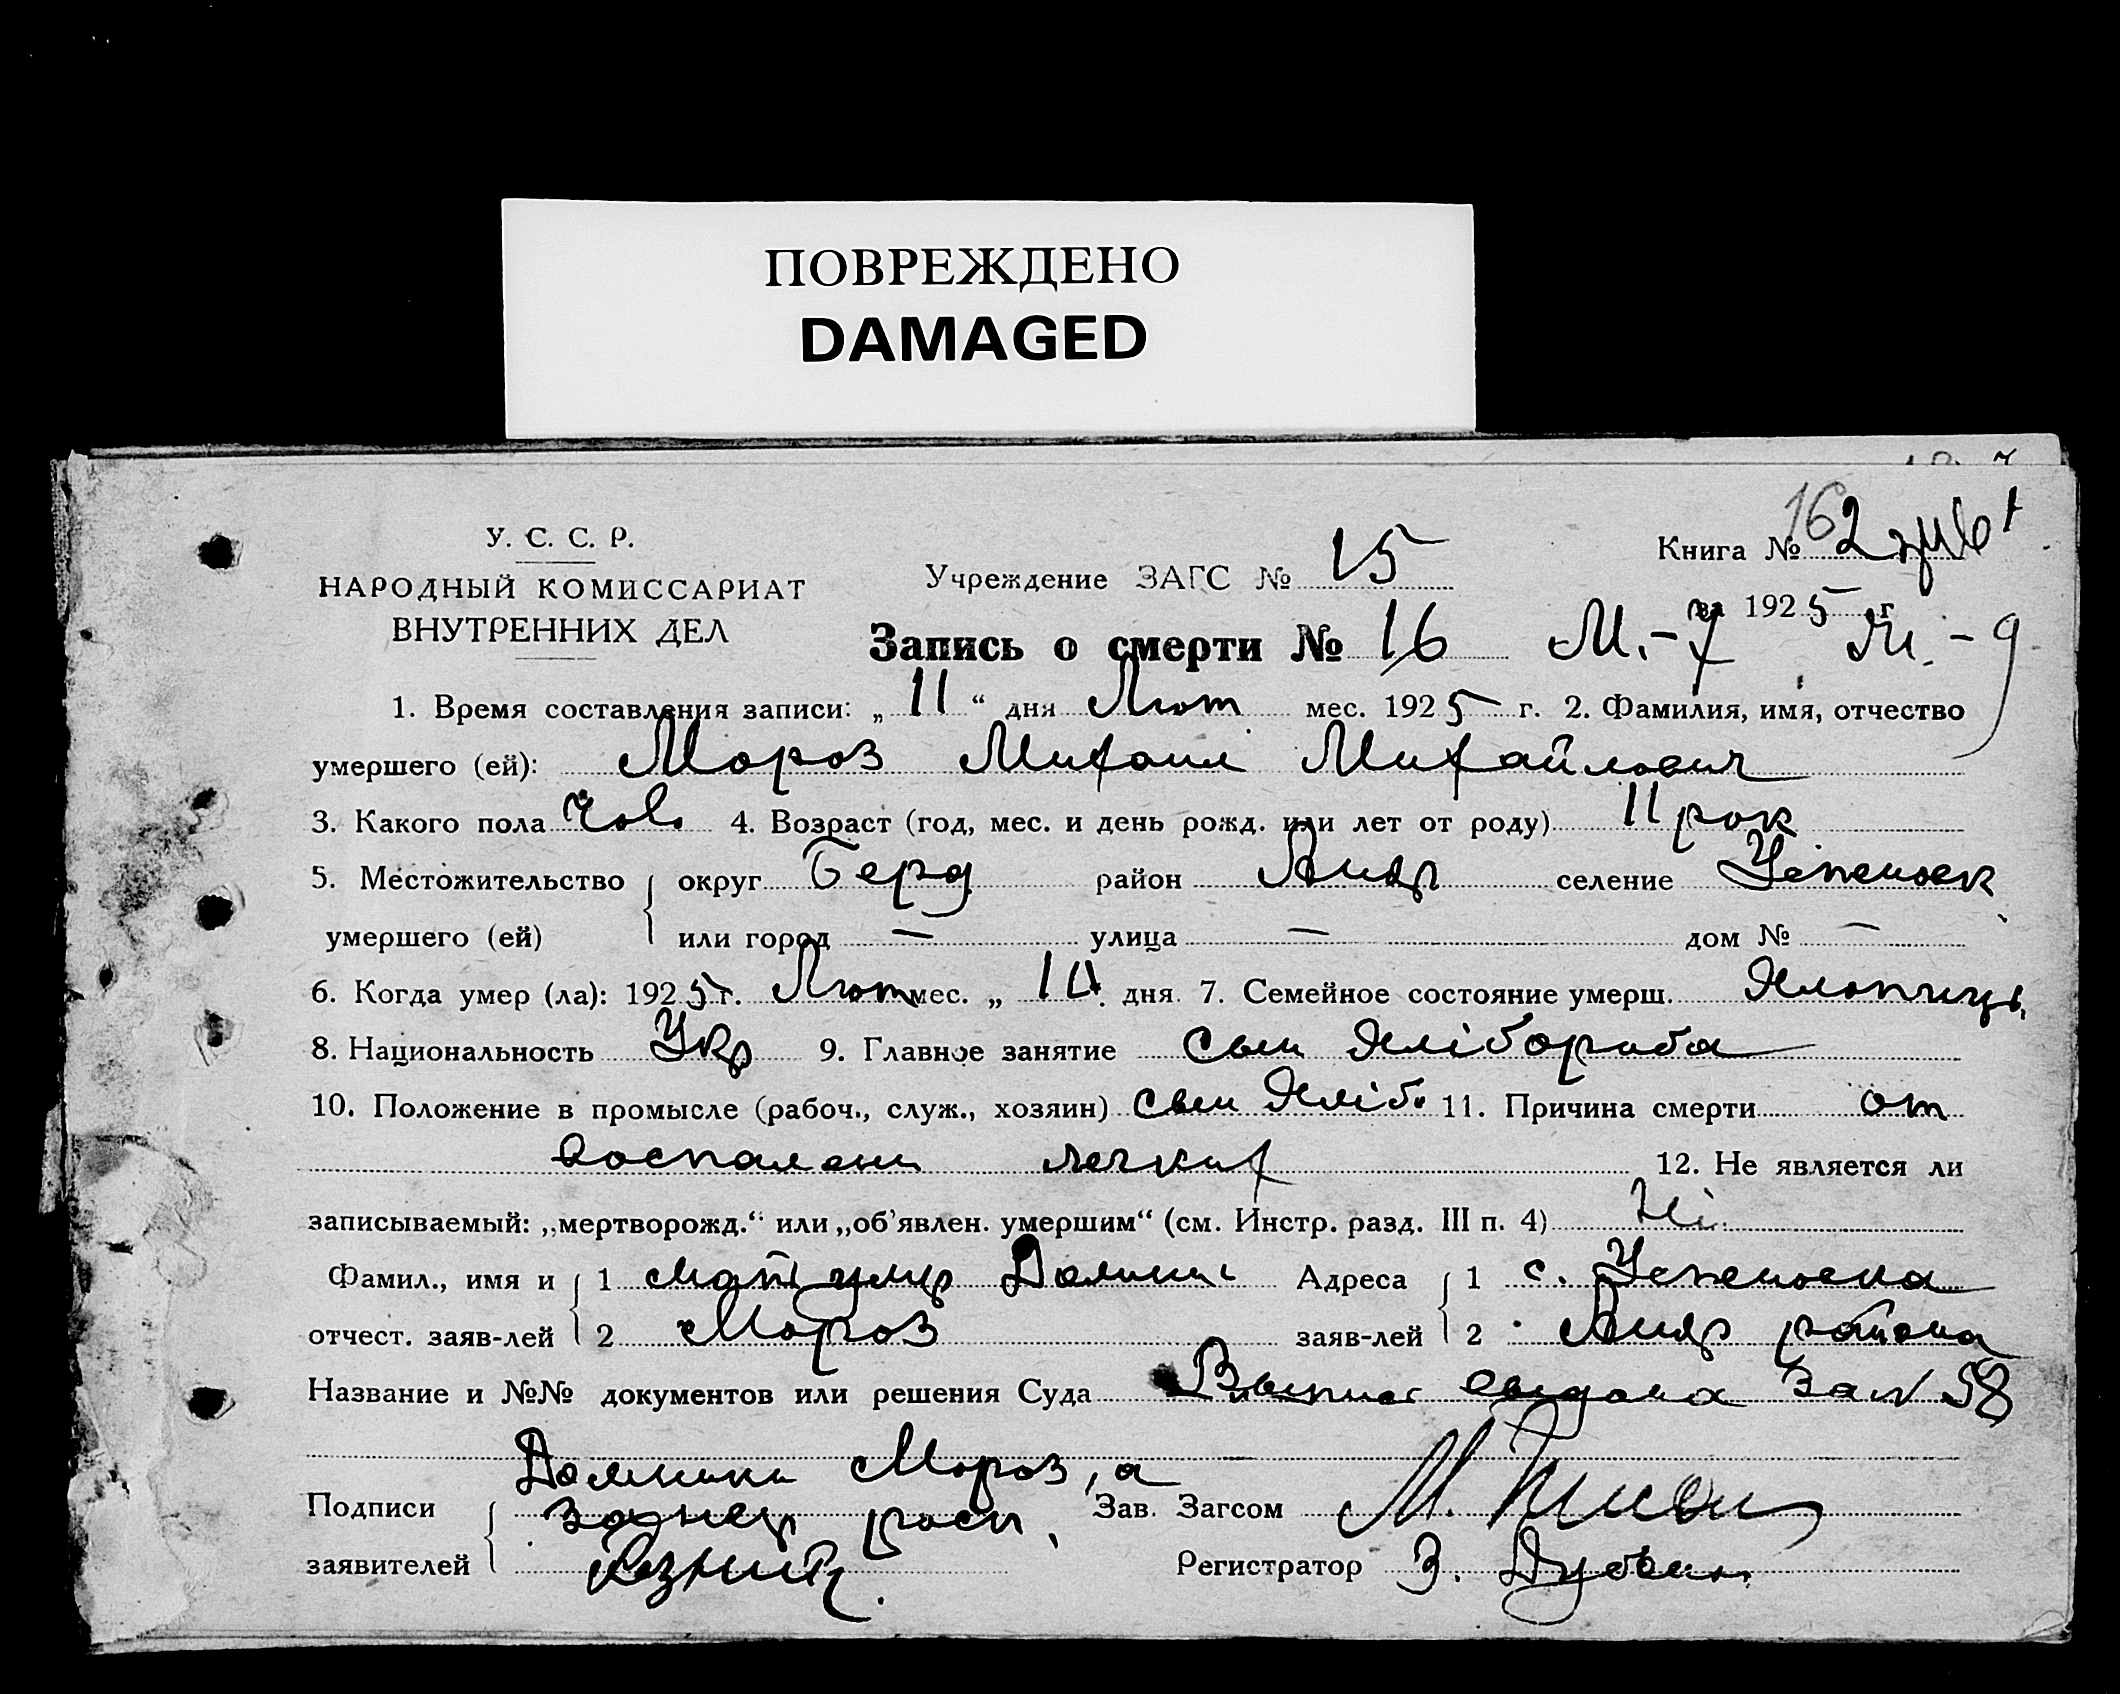 ПОВРЕЖДЕНО
DAMAGED
У. С. С. Р.
НАРОДНЫЙ КОМИССАРИАТ
ВНУТРЕННИХ ДЕЛ
Учреждение ЗАГС № 15
Книга № 2
162
за 1925 г.
Запись о смерти № 16 М.-7 М.-9
1. Время составления записи: „11“ дня Лют мес. 1925 г. 2. Фамилия, имя, отчество
умершего (ей): Мороз Михаил Михайлович
3. Какого пола Чол. 4. Возраст (год, мес. и день рожд. или лет от роду) 11 рок
5. Местожительство округ Берд район Андр селение Успеновк
умершего (ей) или город — улица — дом № —
6. Когда умер (ла): 1925 г. Лют мес. „ 10. дня. 7. Семейное состояние умерш. Хлопчиць
8. Национальность Укр 9. Главное занятие Сын Хлібороба
10. Положение в промысле (рабоч., служ., хозяин) Сын Хліб. 11. Причина смерти от
воспалени легких 12. Не является ли
записываемый: „мертворожд.“ или „об’явлен. умершим“ (см. Инстр. разд. III п. 4) Ні
Фамил., имя и 1 мать Адреса 1 с. Успеновка
отчест. заяв-лей 2 Мороз заяв-лей 2 Андр района
Название и №№ документов или решения Суда Выпис За № 58
Мороз, а
Подписи Зав. Загсом М.
заявителей Регистратор З.